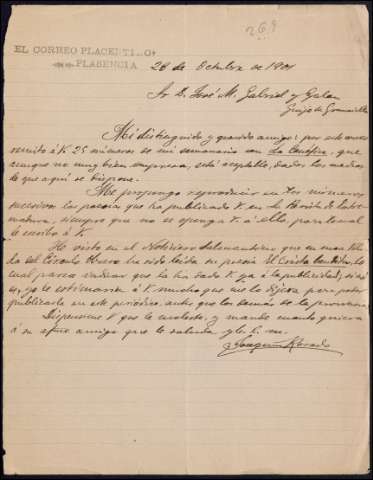 269
EL CORREO PLACENTINO
PLASENCIA
28 de Octubre de 1901
Sr. D. José M. Gabriel y Galan
Guijo de Granadilla
Mi distinguido y querido amigo: por este correo
remito á V. 25 números de mi semanario con La Cenéfica, que
aunque no muy bien impresa, está aceptable, dados los medios
de que aquí se dispone.
Me propongo reproducir en los números
sucesivos las poesías que ha publicado V. en la Revista de Extre-
madura, siempre que no se oponga V. á ello, para lo cual
le escribo á V.
He visto en el Noticiero Salmantino que en una vela
da del Círculo Obrero ha sido leída su poesía El Cristu benditu, lo
cual parece indicar que la ha dado V. ya á la publicidad; si es
así, yo le estimaría á V. mucho que me lo dijera para poder
publicarla en este periódico, antes que los demás de la provincia.
Dispénseme V. que le moleste, y mande cuanto quiera
á su afmo amigo que le saluda y b. s. m.
Joaquin Rosado